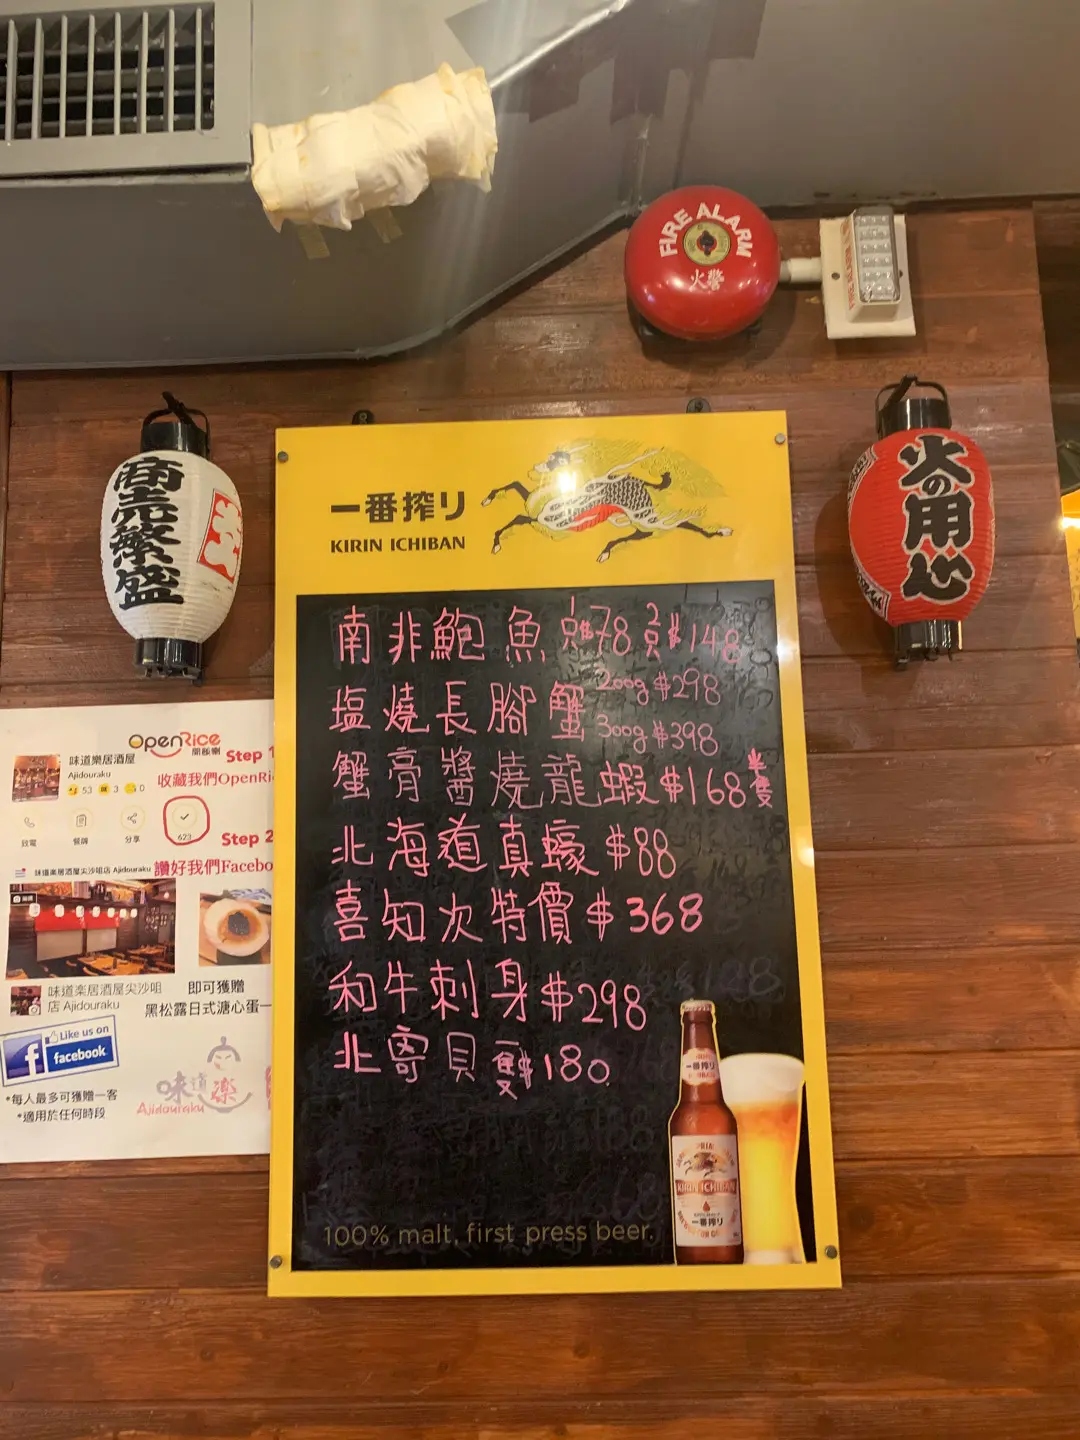 FIRE ALARM
火警
商売繁盛
火の用心
一番搾り
KIRIN ICHIBAN
南非鮑魚 1只$78 2只$148
塩燒長腳蟹 200g $298
300g $398
蟹膏醬燒龍蝦 $168 半隻
北海道真蠔 $88
喜知次特價 $368
和牛刺身 $298
北寄貝 一隻$180
100% malt, first press beer.
一番搾り
KIRIN ICHIBAN
一番搾り
OpenRice
開飯喇
味道樂居酒屋
Ajidouraku
53 3 0
Step 1
收藏我們OpenRi
致電 餐牌 分享 623
Step 2
讚好我們Facebo
味道楽居酒屋尖沙咀店 Ajidouraku
味道楽居酒屋尖沙咀
店 Ajidouraku
即可獲贈
黑松露日式溏心蛋一
Like us on
facebook
*每人最多可獲贈一客
*適用於任何時段
味道楽
Ajidouraku